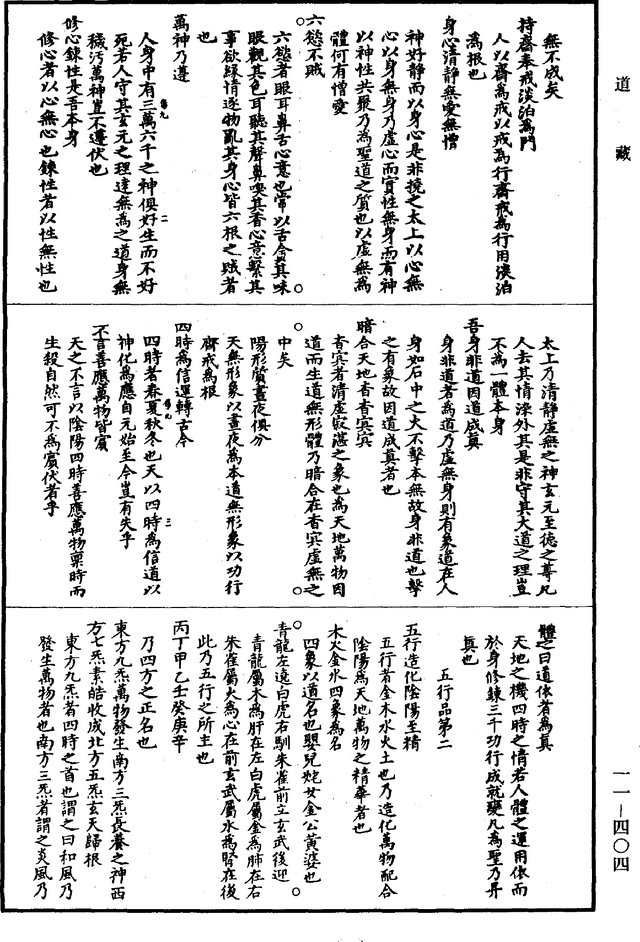 道藏
無不成矣
持齋奉戒淡泊為門
人以齋為戒以戒為行齋戒為行用淡泊
為根也
身心清静無愛無憎
神好静而以身心是非撓之太上以心無
心以身無身乃虛心而實性無身而有神
以神性共聚乃為聖道之質也以虛無為
體何有憎愛
六慾不賊
六慾者眼耳鼻舌心意也常以舌貪其味
眼觀其色耳聽其聲鼻嗅其香心意繫其
事欲緣情逐物亂其身心皆六根之賊者
也
萬神乃遵
人身中有三萬六千之神俱好生而不好
死若人守其玄元之理達無為之道身無
穢污萬神豈不遵伏也
修心鍊性是吾本身
修心者以心無心也鍊性者以性無性也
太上乃清静虛無之神玄元至德之尊凡
人去其情滓外其是非守其大道之理豈
不為一體本身
吾身非道因道成真
身非道者為道乃虛無身則有象道在人
身如石中之火不擊本無故身非道也擊
之有象故因道成真者也
暗合天地杳杳冥冥
杳冥者清虛寂湛之象也為天地萬物因
道而生道無形體乃暗合在杳冥虛無之
中矣
陽形質晝夜俱分
天無形象以晝夜為本道無形象以功行
齋戒為根
四時為信運轉古今
四時者春夏秋冬也天以四時為信道以
神化為應自元始至今豈有失乎
不言善應萬物皆賓
天之不言以陰陽四時善應萬物稟時而
生殺自然可不為賓伏者乎
體之曰道依者為真
天地之機四時之情若人體之運用依而
於身修鍊三千功行成就變凡為聖乃昇
真也
五行品第二
五行造化陰陽至精
五行者金木水火土也乃造化萬物配合
陰陽為天地萬物之精華者也
木火金水四象為名
四象以道名也嬰兒姹女金公黃婆也
青龍左遶白虎右馴朱雀前立玄武後迎
青龍屬木為肝在左白虎屬金為肺在右
朱雀屬火為心在前玄武屬水為腎在後
此乃五行之所主也
丙丁甲乙壬癸庚辛
乃四方之正名也
東方九炁萬物發生南方三炁長養之神西
方七炁素皓收成北方五炁玄天歸根
東方九炁者四時之首也謂之曰和風乃
發生萬物者也南方三炁者謂之炎風乃
一一－四〇四